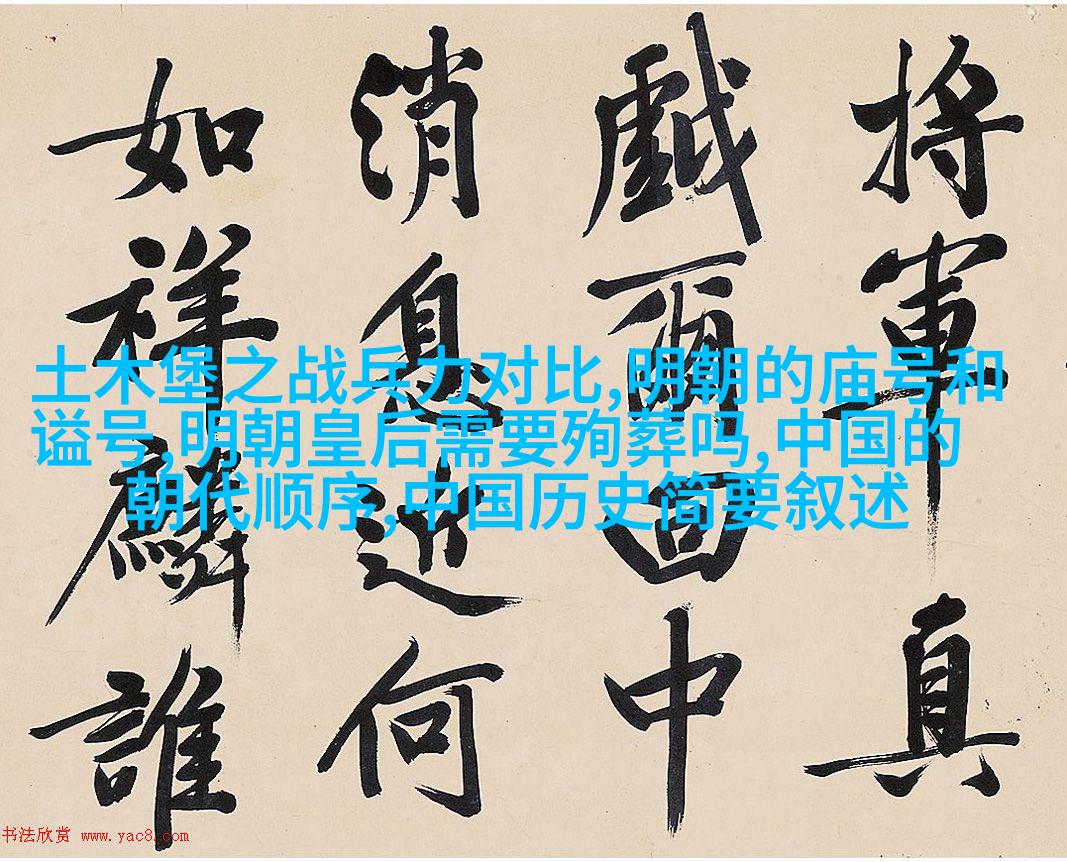 將軍真
戲爾回中
消息近何
如祥麟誰
土木堡之战兵力对比,明朝的庙号和
谥号,明朝皇后需要殉葬吗,中国的
朝代顺序,中国历史简要叙述
书法欣赏 www.yac8.com